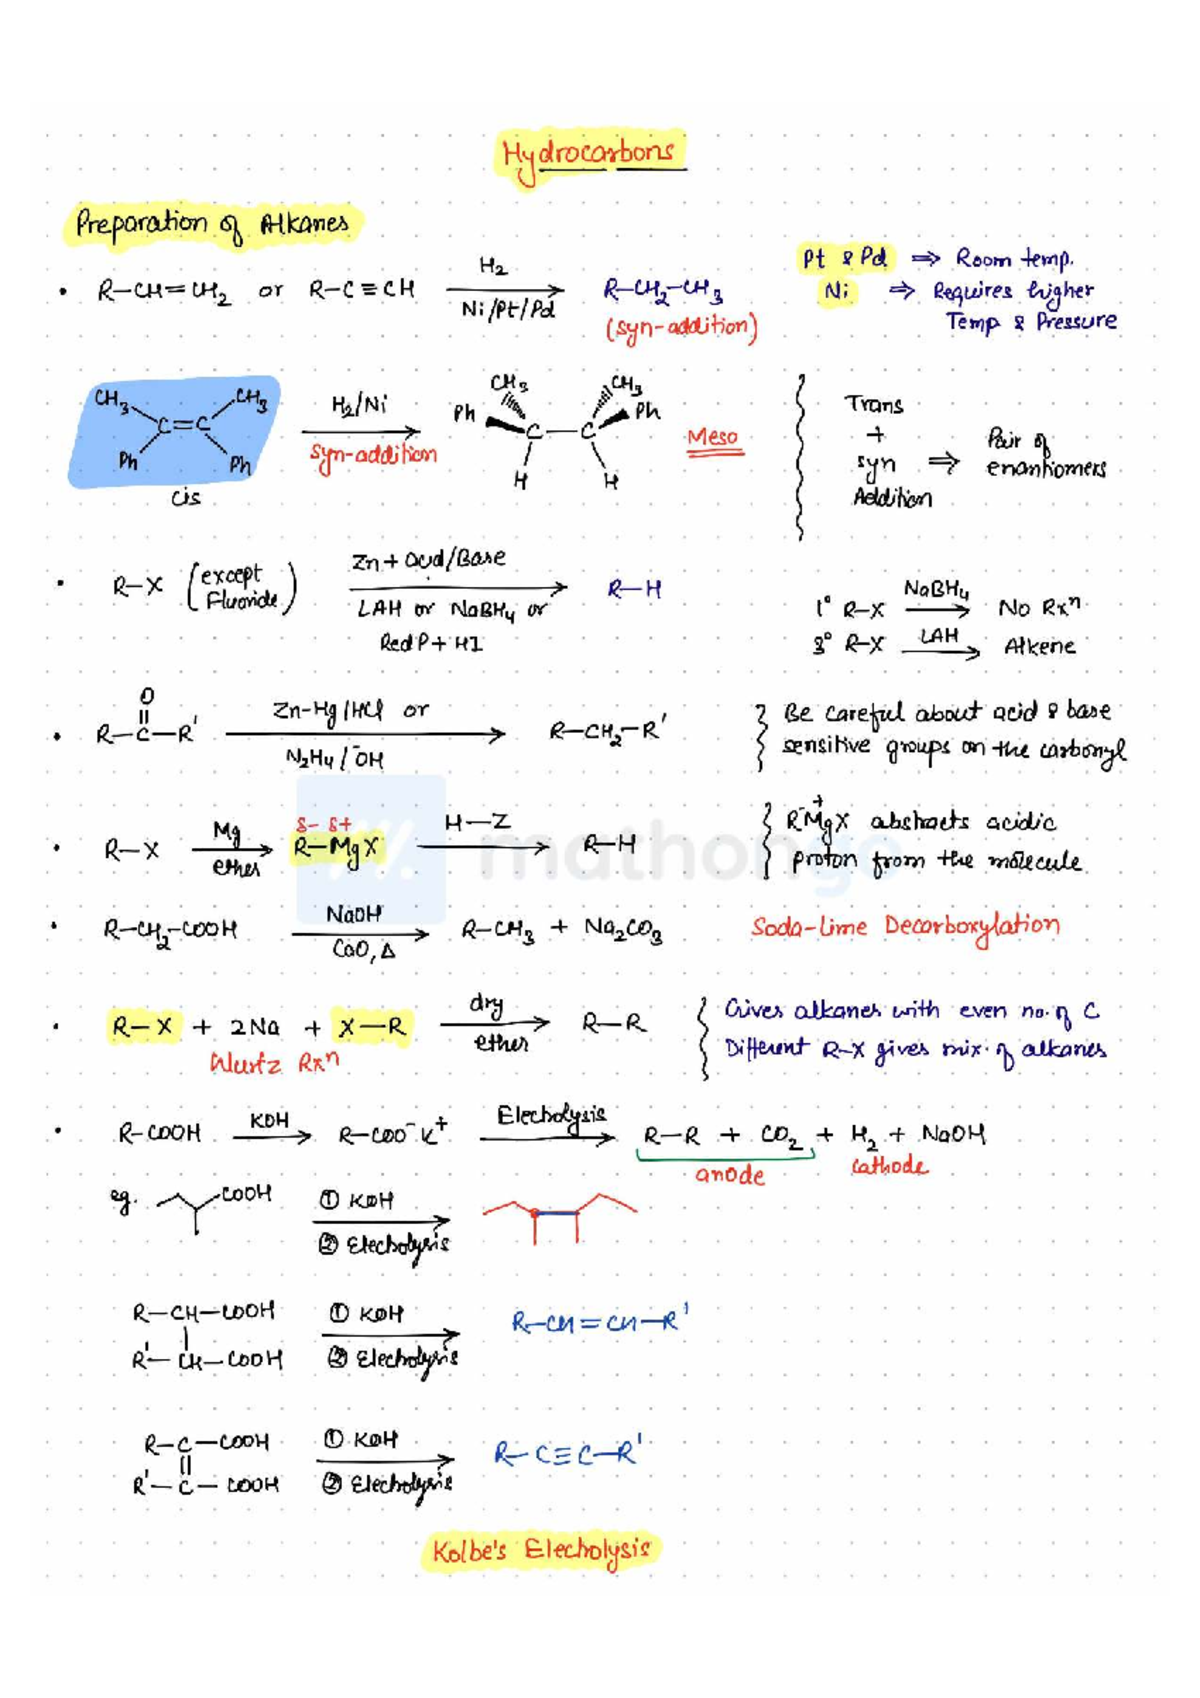 Hydrocarbons
Preparation of Alkanes
• R–CH=CH₂ or R–C≡CH H₂ Ni/Pt/Pd R–CH₂–CH₃ (syn-addition)
Pt & Pd ⇒ Room temp.
Ni ⇒ Requires higher
Temp & Pressure
CH₃ CH₃ C=C Ph Ph
cis
H₂/Ni
Syn-addition
CH₃ CH₃ Ph Ph C–C H H
Meso
Trans
+
syn ⇒ Pair of enantiomers
Addition
• R–X (except Fluoride) Zn + Acid/Base R–H
LAH or NaBH₄ or
Red P + HI
1° R–X NaBH₄ → No Rxⁿ
3° R–X LAH → Alkene
• R–C(=O)–R' Zn-Hg/HCl or N₂H₄/⁻OH R–CH₂–R'
Be careful about acid & base
sensitive groups on the carbonyl
• R–X Mg ether → δ- δ+ R–MgX H–Z → R–H
R⁻Mg⁺X abstracts acidic
proton from the molecule
mathongo
• R–CH₂–COOH NaOH CaO, Δ → R–CH₃ + Na₂CO₃ Soda-Lime Decarboxylation
• R–X + 2Na + X–R dry ether → R–R
Wurtz Rxⁿ
Gives alkanes with even no. of C
Different R–X gives mix. of alkanes
• R–COOH KOH → R–COO⁻K⁺ Electrolysis → R–R + CO₂ + H₂ + NaOH
anode cathode
eg. COOH ① KOH
② Electrolysis
R–CH–COOH ① KOH R–CH=CH–R'
R'–CH–COOH ② Electrolysis
R–C–COOH ① KOH R–C≡C–R'
R'–C–COOH ② Electrolysis
Kolbe's Electrolysis